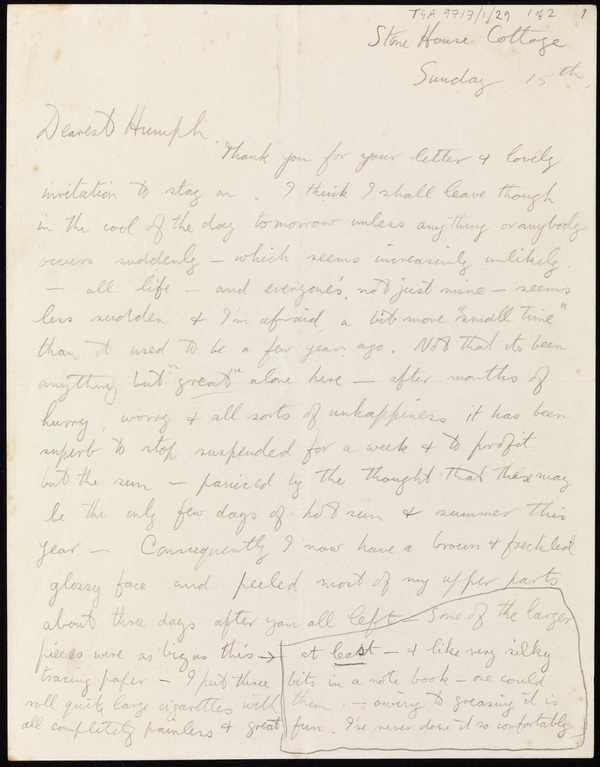 TGA 9717/1/29 1 of 2 1
Stone House Cottage
Sunday 15th.
Dearest Humph
Thank you for your letter & lovely
invitation to stay on. I think I shall leave though
in the cool of the day tomorrow unless anything or anybody
occurs suddenly – which seems increasingly unlikely.
– all life – and everyone's, not just mine – seems
less sudden & I'm afraid a bit more "small time"
than it used to be a few years ago. Not that its been
anything but "great" alone here – after months of
hurry, worry & all sorts of unhappiness it has been
superb to stop suspended for a week & to profit
but the sun – panicced by the thought that these may
be the only few days of hot sun & summer this
year – Consequently I now have a brown & freckled
glossy face and peeled most of my upper parts
about three days after you all left – Some of the larger
pieces were as big as this → at least – & like very silky
tracing paper – I put three bits in a note book – one could
roll quite large cigarettes with them. – owing to greasing it is
all completely painless & great fun. I've never done it so comfortably